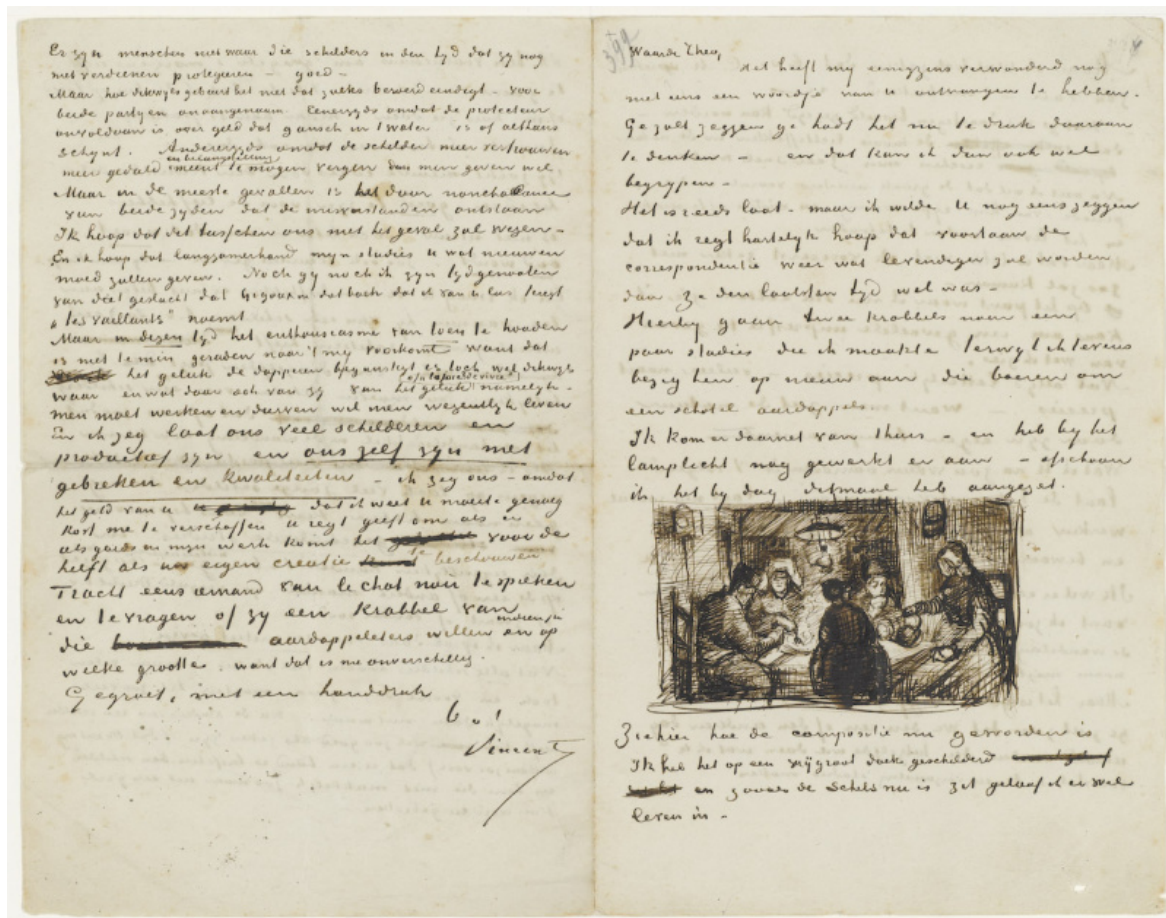 Er zyn menschen niet waar die schilders in den tyd dat zy nog
niet verdienen protegeeren – goed –
Maar hoe dikwyls gebeurt het niet dat zulks beroerd eindigt – voor
beide partyen onaangenaam. Eenerzyds omdat de protecteur
onvoldaan is over geld dat gansch in 't water is of althans
schynt. Anderzyds omdat de schilder meer vertrouwen
meer geduld en belangstelling meent te mogen vergen dan men geven wil
Maar in de meeste gevallen is het door nonchalance
van beide zyden dat de misverstanden ontstaan
Ik hoop dat dit tusschen ons niet het geval zal wezen –
En ik hoop dat langzamerhand myn studies u wat nieuwen
moed zullen geven. Noch gy noch ik zyn tydgenooten
van die't geslacht dat Gigoux in dat boek dat ik van u las teregt
„les vaillants" noemt
Maar in dezen tyd het enthousiasme van toen te houden
is niet te min geraden naar 't my voorkomt want dat
het geluk de dapperen begunstigt is toch wel dikwyls
waar en wat daar ook van zy van het geluk of „la joie(?) de vivre" namelyk –
men moet werken en durven wil men wezentlyk leven
En ik zeg laat ons veel schilderen en
productief zyn en ons zelf zyn met
gebreken en kwaliteiten – ik zeg ons – omdat
het geld van u dat ik weet u moeite genoeg
kost me te verschaffen u regt geeft om als er
iets goeds in myn werk komt het voor de
helft als uw eigen creatie te beschouwen
Tracht eens iemand van le chat noir te spreken
en te vragen of zy een krabbel van
die aardappeleters willen en indien ja op
welke grootte, want dat is me onverschillig.
Gegroet, met een handdruk
t. à t.
Vincent
399
Waarde Theo,
Het heeft my eenigzins verwonderd nog
niet eens een woordje van u ontvangen te hebben.
Ge zult zeggen ge hadt het nu te druk daaraan
te denken – en dat kan ik dan ook wel
begrypen –
Het is reeds laat – maar ik wilde U nog eens zeggen
dat ik regt hartelyk hoop dat voortaan de
correspondentie weer wat levendiger zal worden
dan ze den laatsten tyd wel was –
Hierby gaan twee krabbels naar een
paar studies die ik maakte terwyl ik tevens
bezig ben op nieuw aan die boeren om
een schotel aardappels
Ik kom er daarnet van thuis – en heb by het
lamplicht nog gewerkt er aan – ofschoon
ik het by dag ditmaal heb aangezet.
Ziehier hoe de compositie nu geworden is
Ik heb het op een vrij groot doek geschilderd
en zooals de schets nu is zit geloof ik er wel
leven in –